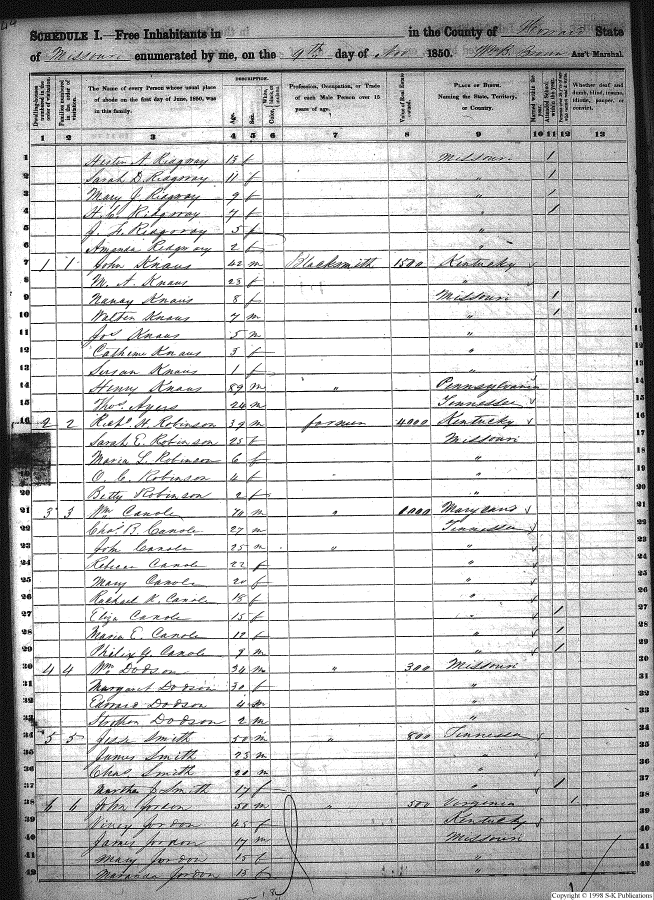 SCHEDULE I.—Free Inhabitants in in the County of Howard State
of Missouri enumerated by me, on the 9th day of Nov 1850. Ass't Marshal.
Dwelling-houses numbered in the order of visitation. Families numbered in the order of visitation. The Name of every Person whose usual place of abode on the first day of June, 1850, was in this family. DESCRIPTION. Age. Sex. Color, White, black, or mulatto. Profession, Occupation, or Trade of each Male Person over 15 years of age. Value of Real Estate owned. PLACE OF BIRTH. Naming the State, Territory, or Country. Married within the year. Attended School within the year. Whether deaf and dumb, blind, insane, idiotic, pauper, or convict.
1 2 3 4 5 6 7 8 9 10 11 12 13
1 Hester A. Ridgway 13 f Missouri 1
2 Sarah D. Ridgway 11 f " 1
3 Mary J. Ridgway 9 f " 1
4 H. C. Ridgway 7 f " 1
5 Ridgway 5 f "
6 Amanda Ridgway 2 f "
7 1 1 John Knaus 42 m Blacksmith 1500 Kentucky
8 M. A. Knaus 23 f "
9 Nancy Knaus 8 f Missouri 1
10 Walten Knaus 7 m " 1
11 Jos Knaus 5 m "
12 Catherine Knaus 3 f "
13 Susan Knaus 1 f "
14 Henry Knaus 89 m " Pennsylvania
15 Thos. Ayers 24 m Tennessee
16 2 2 Richd. H. Robinson 39 m farmer 4000 Kentucky
Sarah E. Robinson 25 f Missouri
Maria L. Robinson 6 f "
O. C. Robinson 4 f "
20 Betty Robinson 2 f "
21 3 3 Wm Canole 70 m "
22 Chas. B. Canole 27 m Tennessee
23 John Canole 25 m " "
24 Rebecca Canole 22 f "
25 Mary Canole 20 f "
26 Rachael K. Canole 18 f "
27 Eliza Canole 15 f " 1
28 Maria E. Canole 12 f " 1
29 Canole 9 m " 1
30 4 4 Wm Dodson 34 m " 300 Missouri
31 Margaret Dodson 30 f "
32 Edward Dodson 4 m "
33 Stephen Dodson 2 m "
34 5 5 Jesse Smith 50 m " 800 Tennessee
35 James Smith 23 m "
36 Chas Smith 20 m "
37 Martha J. Smith 17 f " 1
38 6 6 John Jordon 50 m " 500 Virginia 1
39 Jordon 45 f Kentucky
40 James Jordon 17 m Missouri
41 Mary Jordon 15 f "
42 Jordon 13 f "
Copyright © 1998 S-K Publications